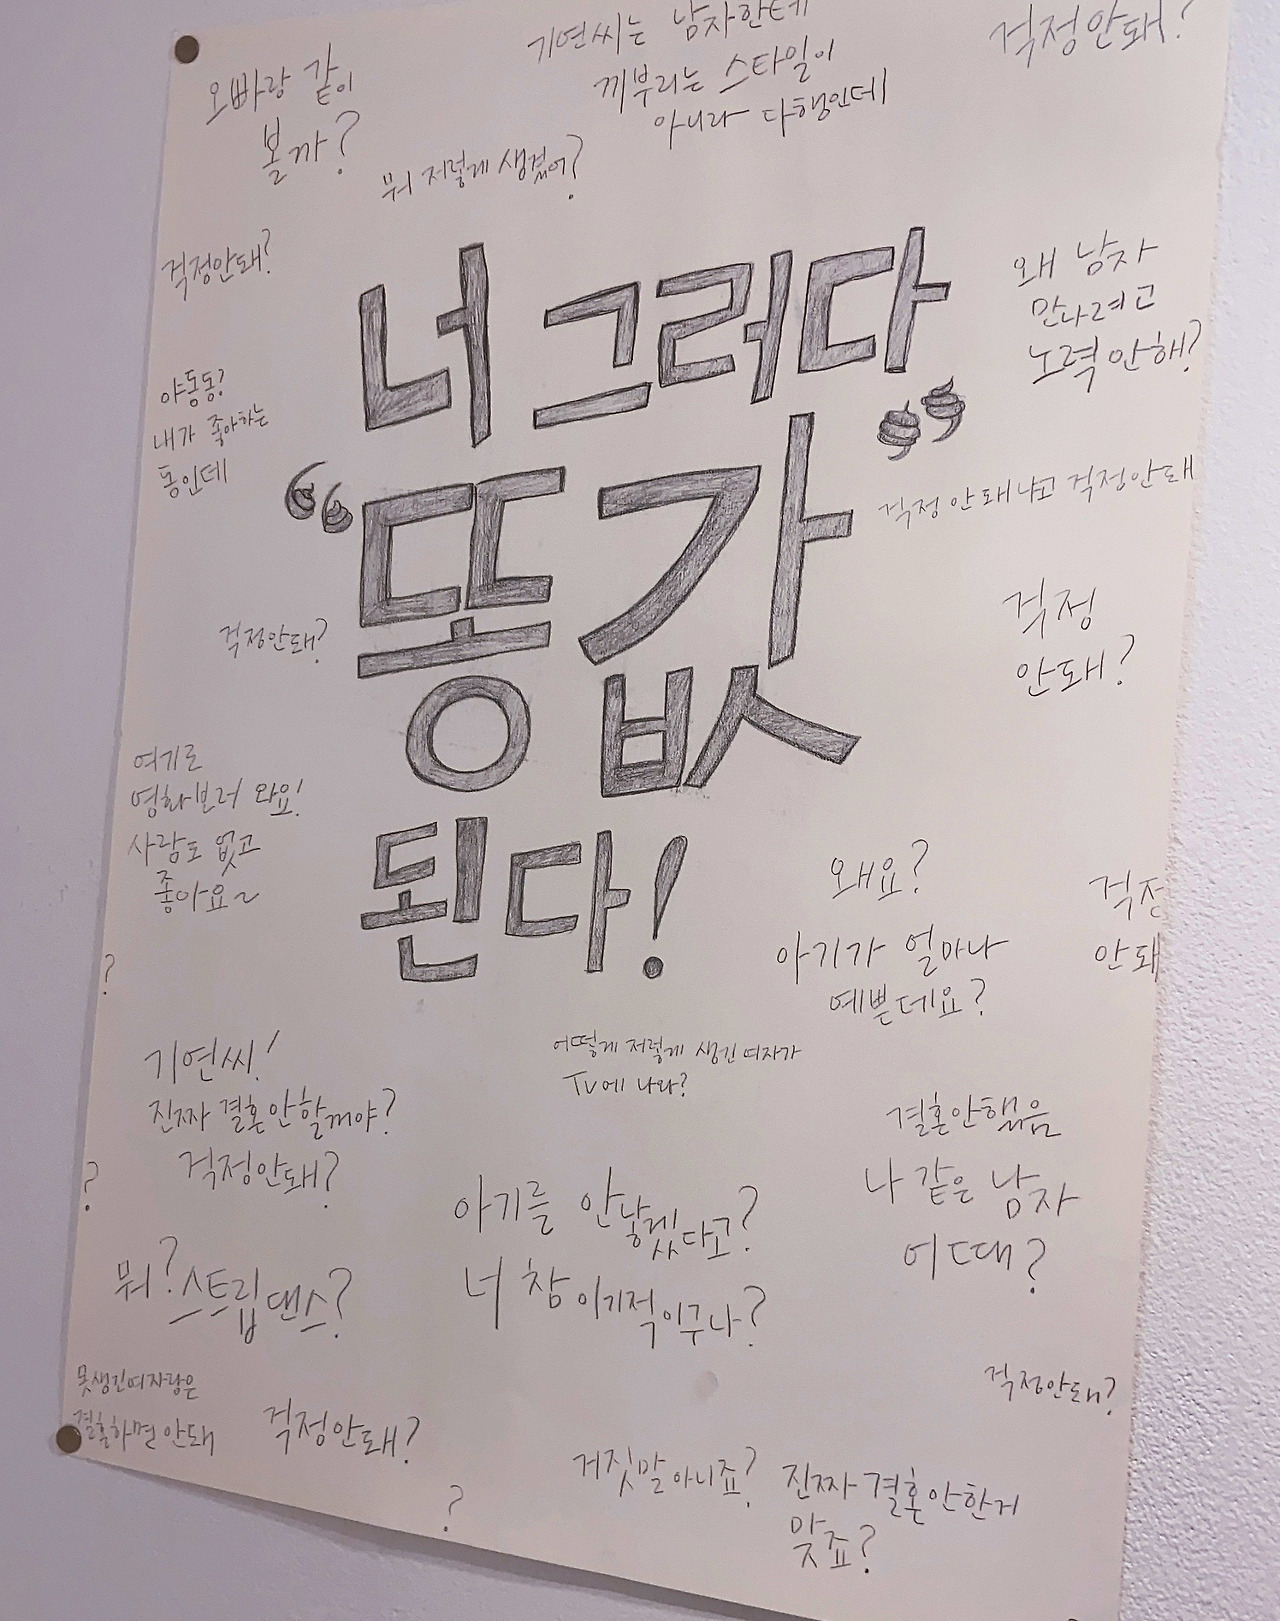 기연씨는 남자한테
끼부리는 스타일이
아니라 다행인데
걱정안돼?
오빠랑 같이
볼까?
뭐 저렇게 생겼어?
걱정안돼?
너 그러다
“똥값”
된다!
왜 남자
만나려고
노력안해?
야동동?
내가 좋아하는
동인데
걱정안돼냐고 걱정안돼
걱정
안돼?
걱정안돼?
여기로
영화보러 와요!
사람도 없고
좋아요~
왜요?
아기가 얼마나
예쁜데요?
걱정
안돼
?
기연씨!
진짜 결혼안할꺼야?
걱정안돼?
어떻게 저렇게 생긴 여자가
TV에 나와?
결혼안했음
나 같은 남자
어때?
?
아기를 안낳겠다고?
너 참 이기적이구나?
뭐? 스트립댄스?
못생긴여자랑은
결혼하면 안돼
걱정안돼?
걱정안돼?
거짓말아니죠?
진짜 결혼안한거
맞죠?
?